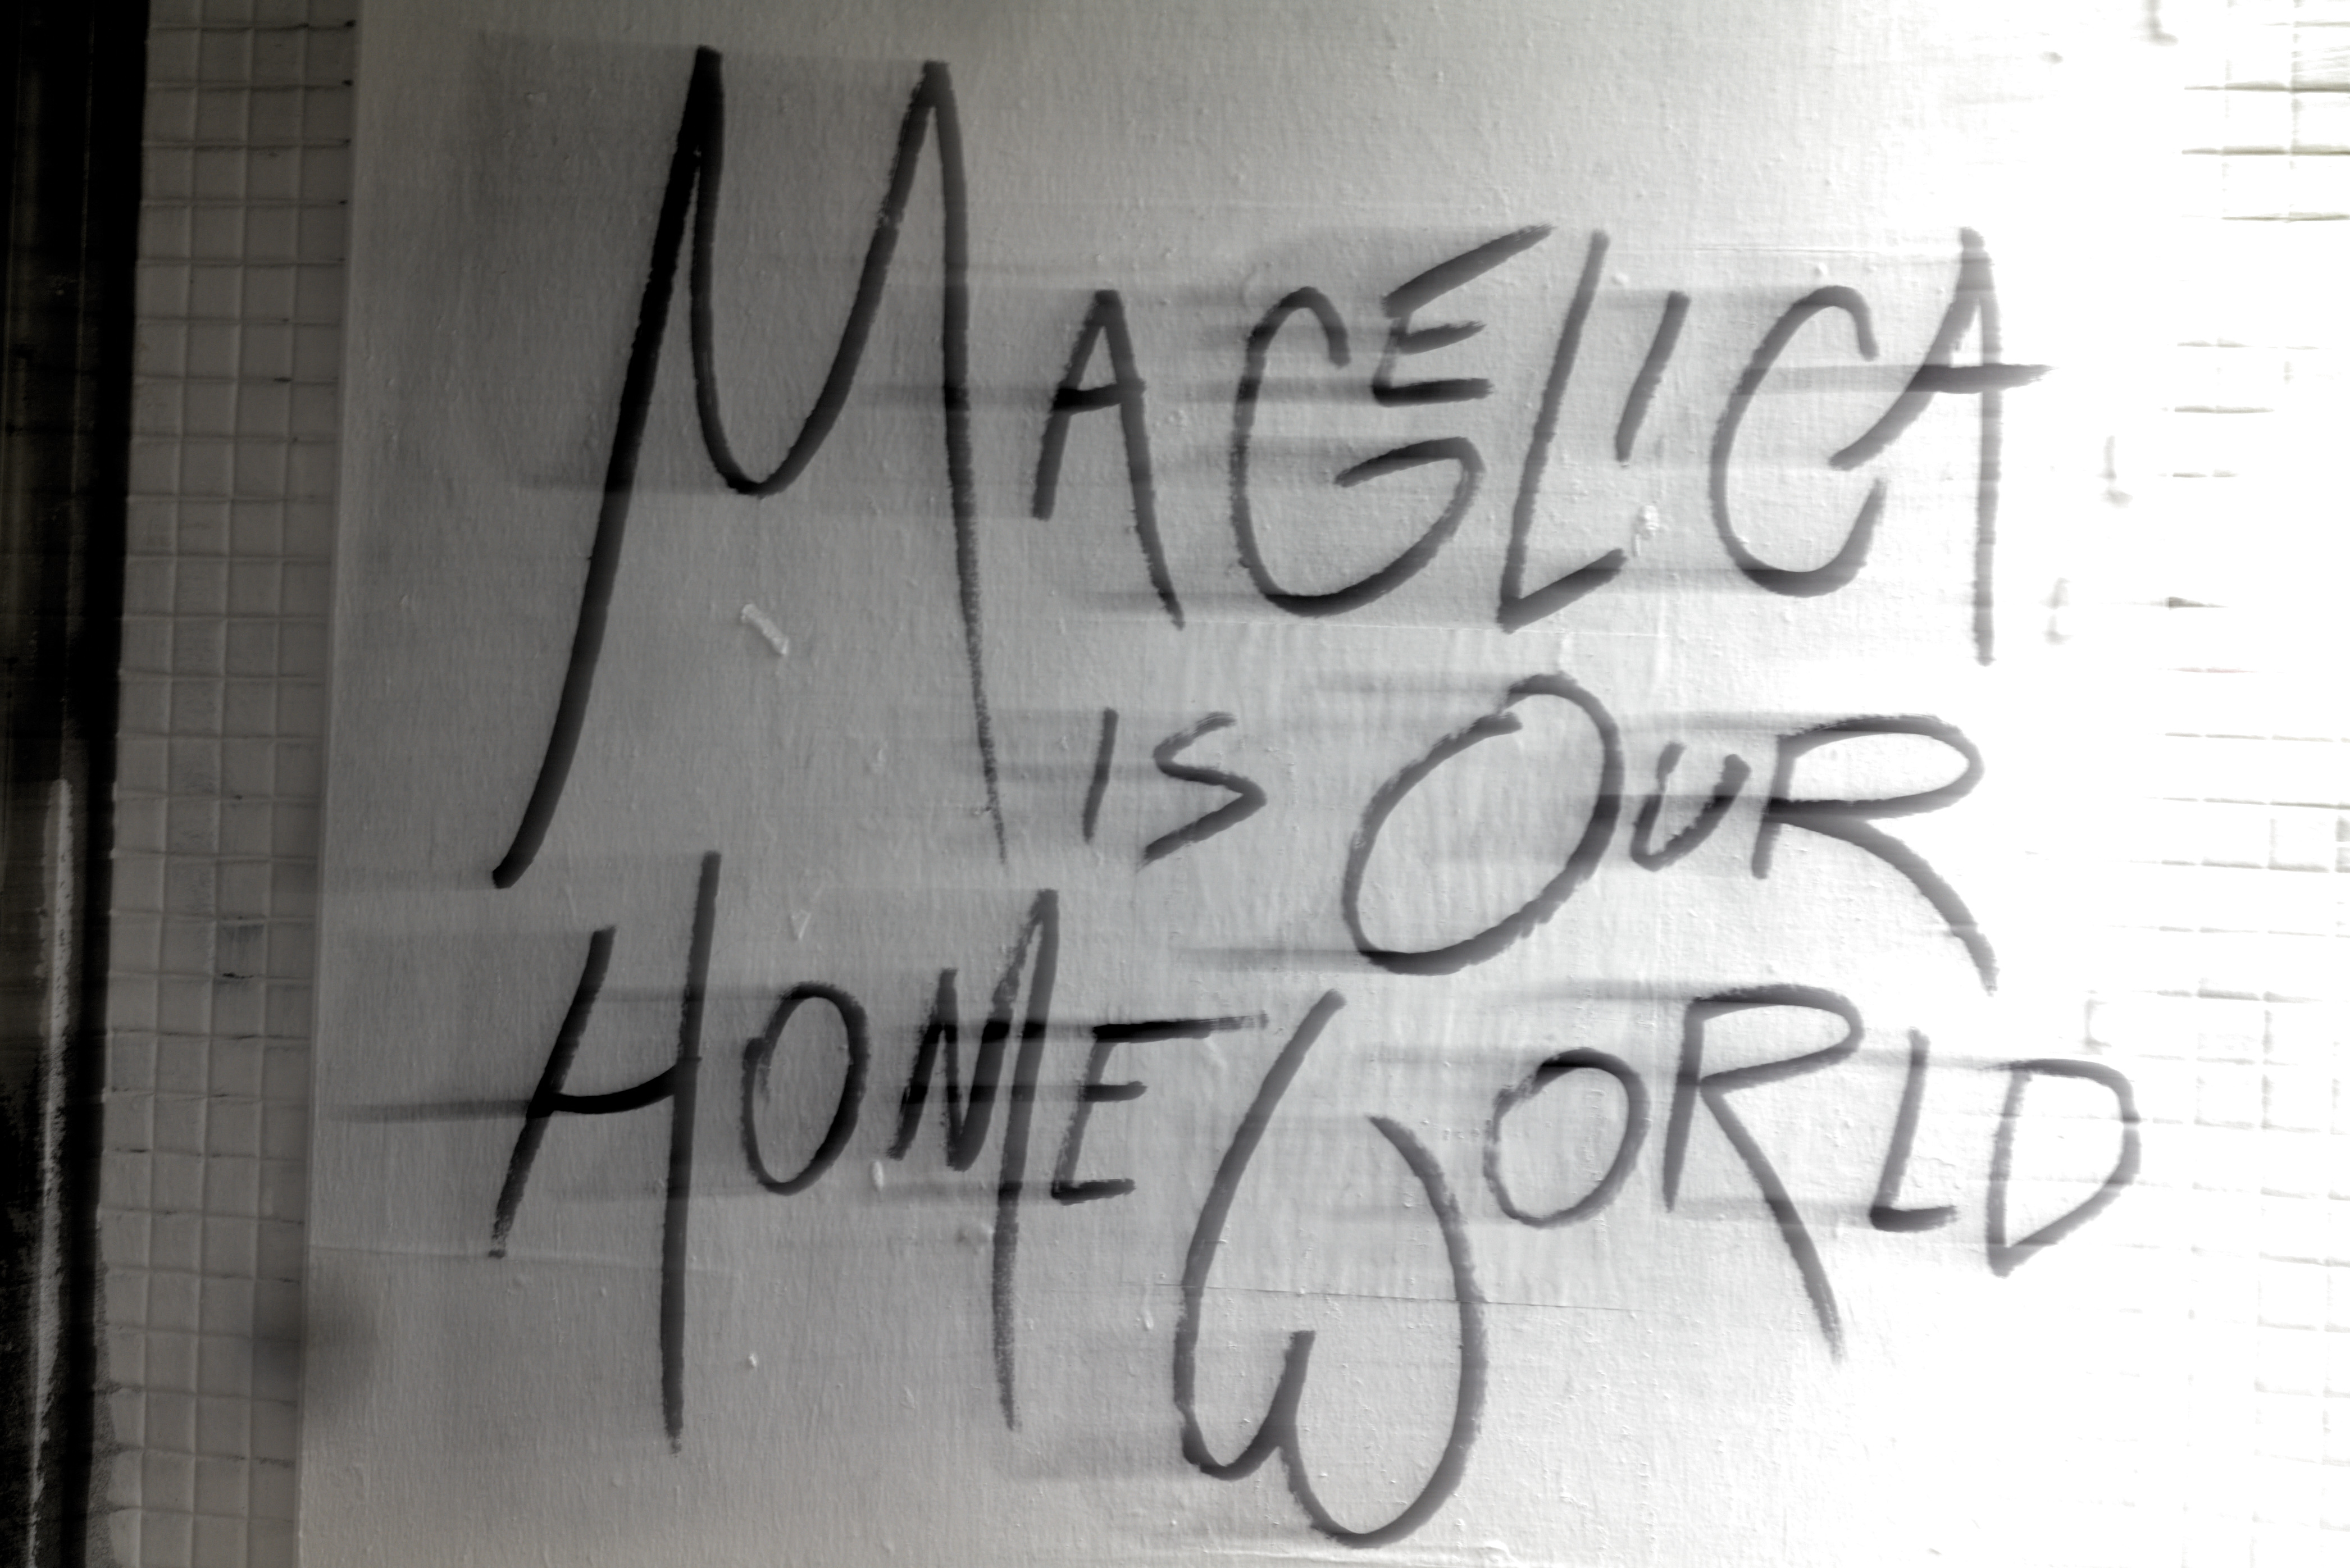 MAGELICA
IS OUR
HOMEWORLD